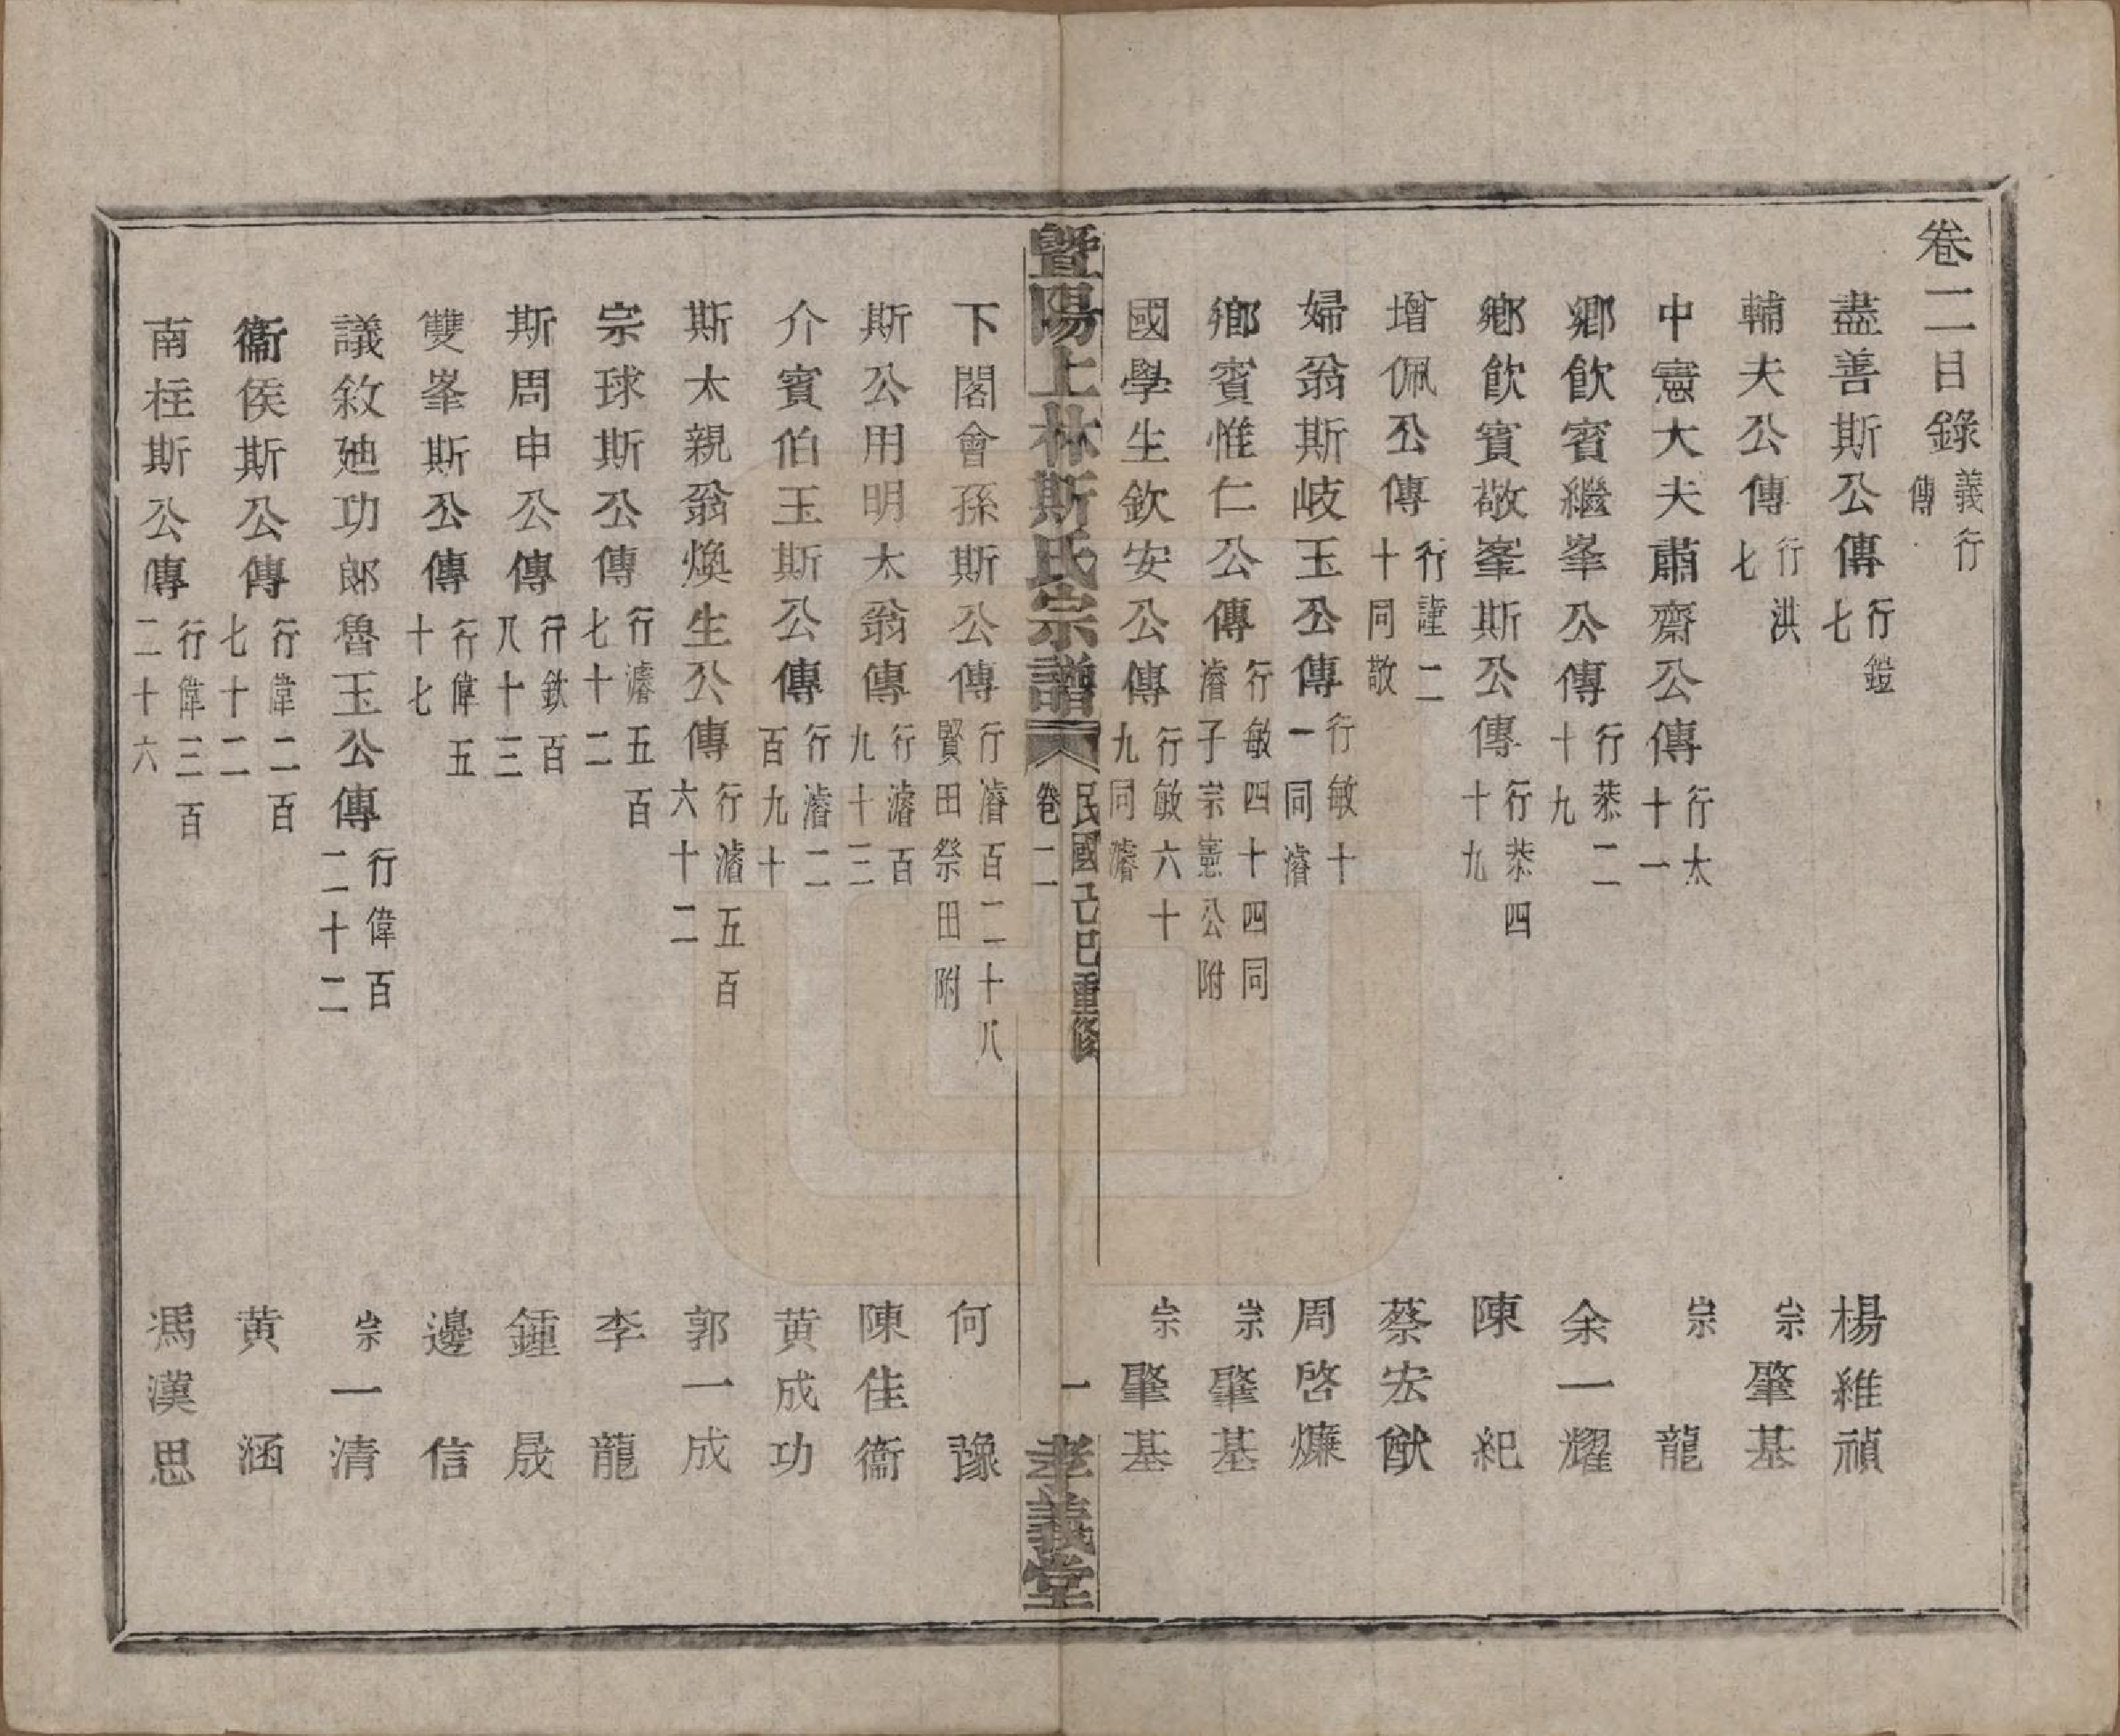 卷二目錄 義行傳
盡善斯公傳 行鎧七 楊維禎
輔夫公傳 行洪七 宗肇基
中憲大夫肅齋公傳 行太十一 宗龍
鄉飲賓繼峯公傳 行恭二十九 余一耀
鄉飲賓敬峯斯公傳 行恭四十九 陳紀
增佩公傳 行謹二十同敬 蔡宏猷
婦翁斯岐玉公傳 行敏十一同濬 周啓㷳
鄉賓惟仁公傳 行敏四十四同濬子宗憲公附 宗肇基
國學生欽安公傳 行敏六十九同濬 宗肇基
暨陽上林斯氏宗譜 卷二 民國己巳重修 一 孝義堂
下閣會孫斯公傳 行濬百二十八賢田祭田附 何豫
斯公用明太翁傳 行濬百九十三 陳佳衞
介賓伯玉斯公傳 行濬二百九十 黄成功
斯太親翁煥生公傳 行濬五百六十二 郭一成
宗球斯公傳 行濬五百七十二 李龍
斯周申公傳 行欽百八十三 鍾晟
雙峯斯公傳 行偉五十七 邊信
議敘廸功郎魯玉公傳 行偉百二十二 宗一清
衞侯斯公傳 行偉二百七十二 黄涵
南柱斯公傳 行偉三百二十六 馮漢思